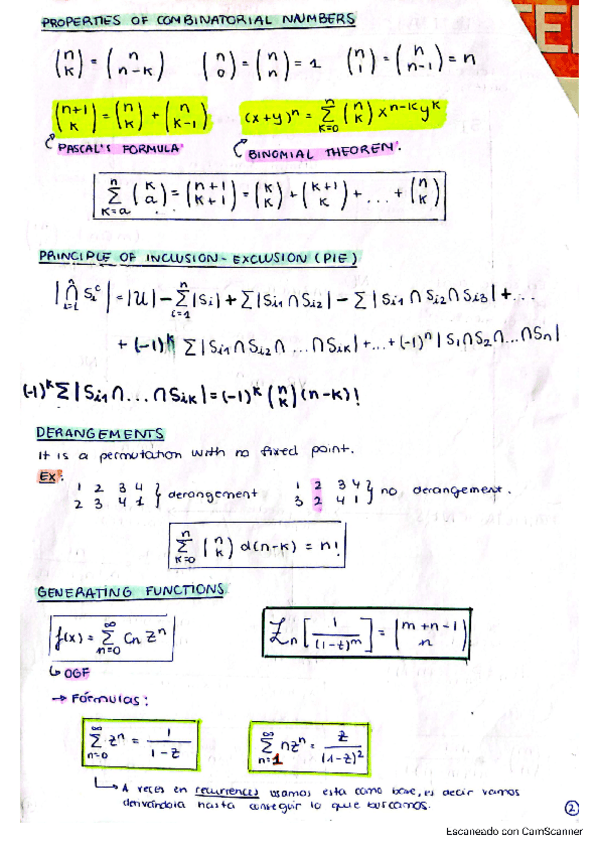 PROPERTIES OF COMBINATORIAL NUMBERS
(n k) = (n n-k) (n 0) = (n n) = 1 (n 1) = (n n-1) = n
(n+1 k) = (n k) + (n k-1) (x+y)^n = Σ_{k=0}^{n} (n k) x^{n-k} y^k
PASCAL'S FORMULA BINOMIAL THEOREM.
Σ_{k=a}^{n} (k a) = (n+1 k+1) = (k k) + (k+1 k) + ... + (n k)
PRINCIPLE OF INCLUSION-EXCLUSION (PIE)
|∩_{i=1}^{n} S_i^c| = |U| - Σ_{i=1}^{n} |Si| + Σ|Si1 ∩ Si2| - Σ|Si1 ∩ Si2 ∩ Si3| + ...
+ (-1)^k Σ|Si1 ∩ Si2 ∩ ... ∩ Sik| + ... + (-1)^n |S1 ∩ S2 ∩ ... ∩ Sn|
(-1)^k Σ|Si1 ∩ ... ∩ Sik| = (-1)^k (n k) (n-k)!
DERANGEMENTS
It is a permutation with no fixed point.
Ex:
1 2 3 4 } derangement 1 2 3 4 } no derangement.
2 3 4 1 3 2 4 1
Σ_{k=0}^{n} (n k) d(n-k) = n!
GENERATING FUNCTIONS
f(x) = Σ_{n=0}^{∞} Cn z^n Zn [1/(1-z)^m] = (m+n-1 n)
↳ OGF
→ Fórmulas:
Σ_{n=0}^{∞} z^n = 1/(1-z) Σ_{n=1}^{∞} n z^n = z/(1-z)^2
↳ A veces en recurrences usamos esta como base, es decir vamos
derivándola hasta conseguir lo que buscamos.
2
Escaneado con CamScanner